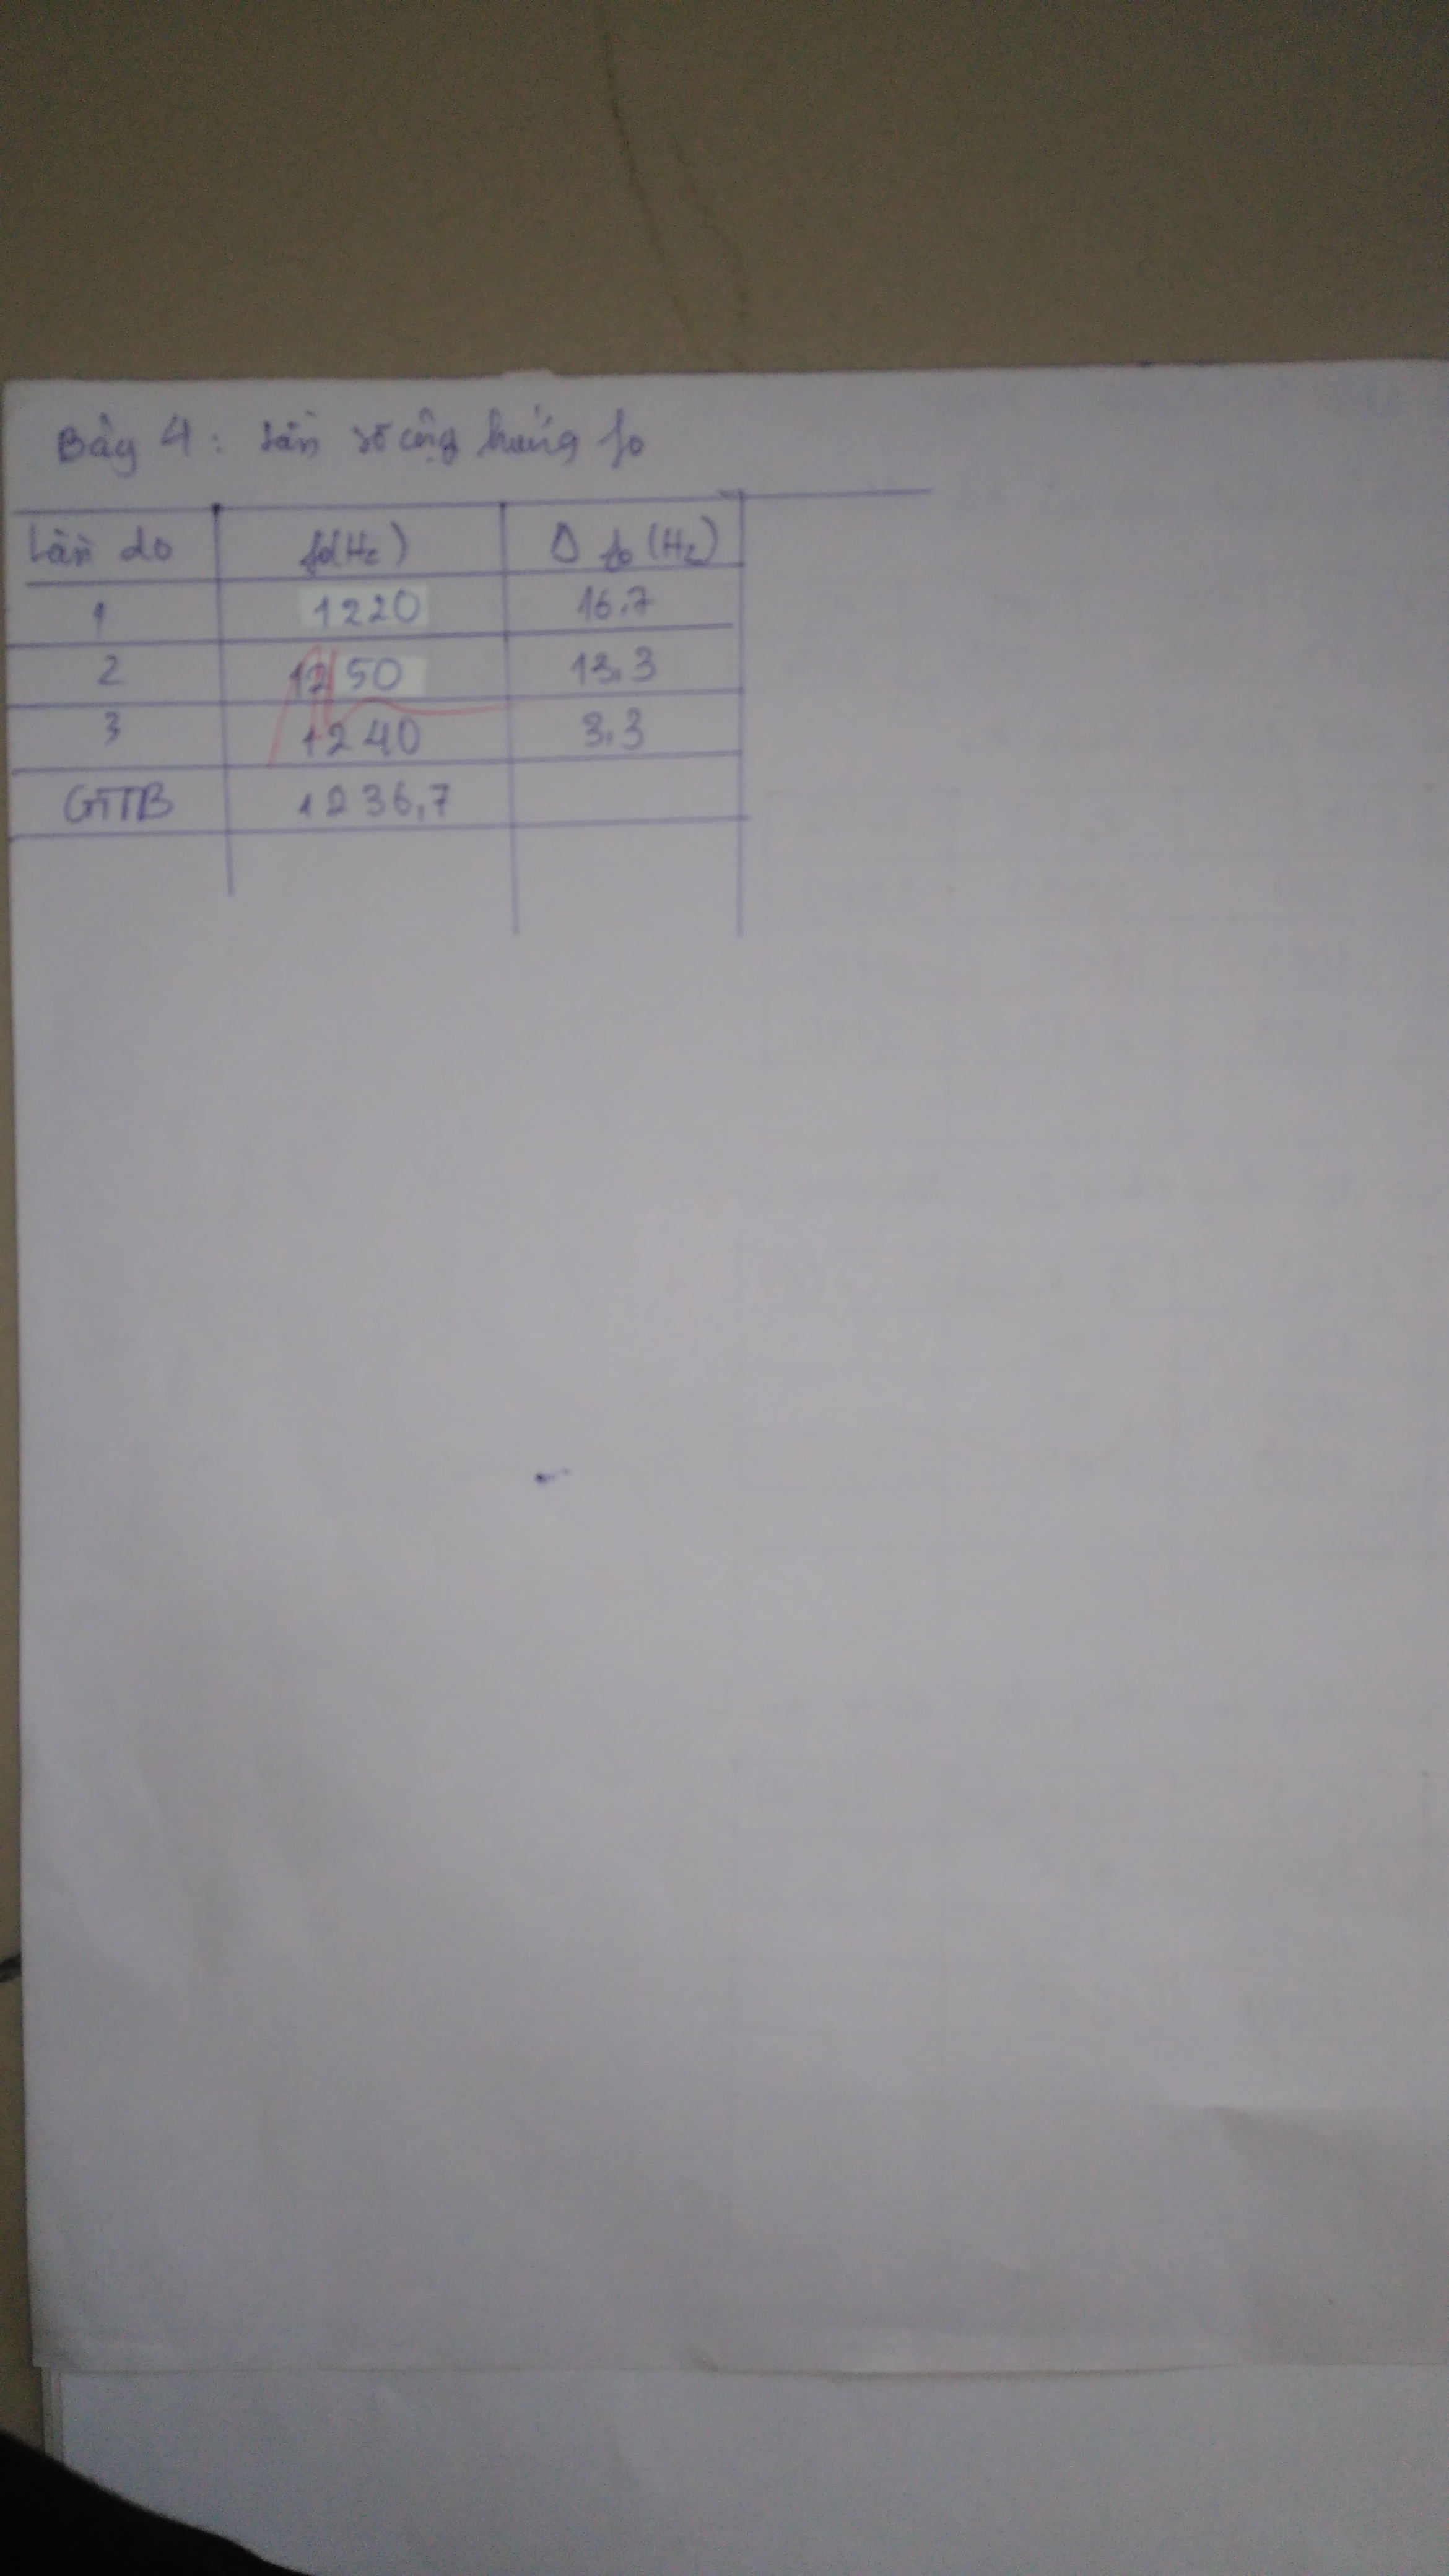 Bảg 4: tần số cộg hưởng f₀
Lần đo f₀(Hz) Δ f₀ (Hz)
1 1220 16,7
2 1250 13,3
3 1240 3,3
GTTB 1236,7